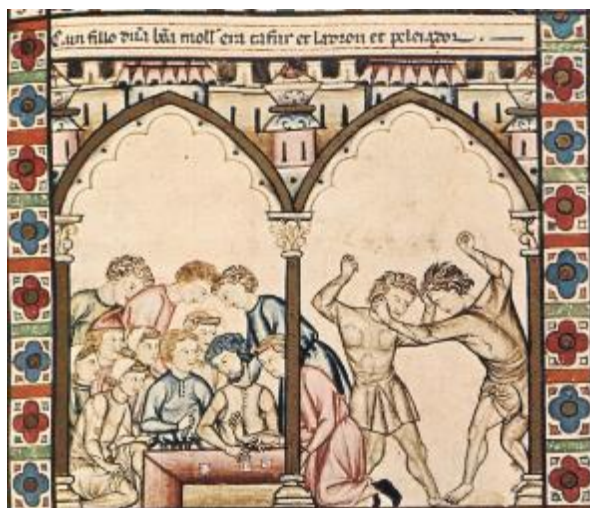 C. un fillo dũa bõa moll' era tafur et ladron et peleiador.